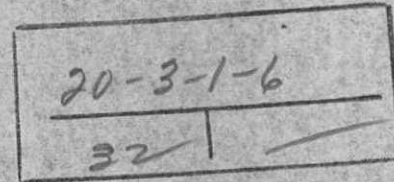 20-3-1-6
32